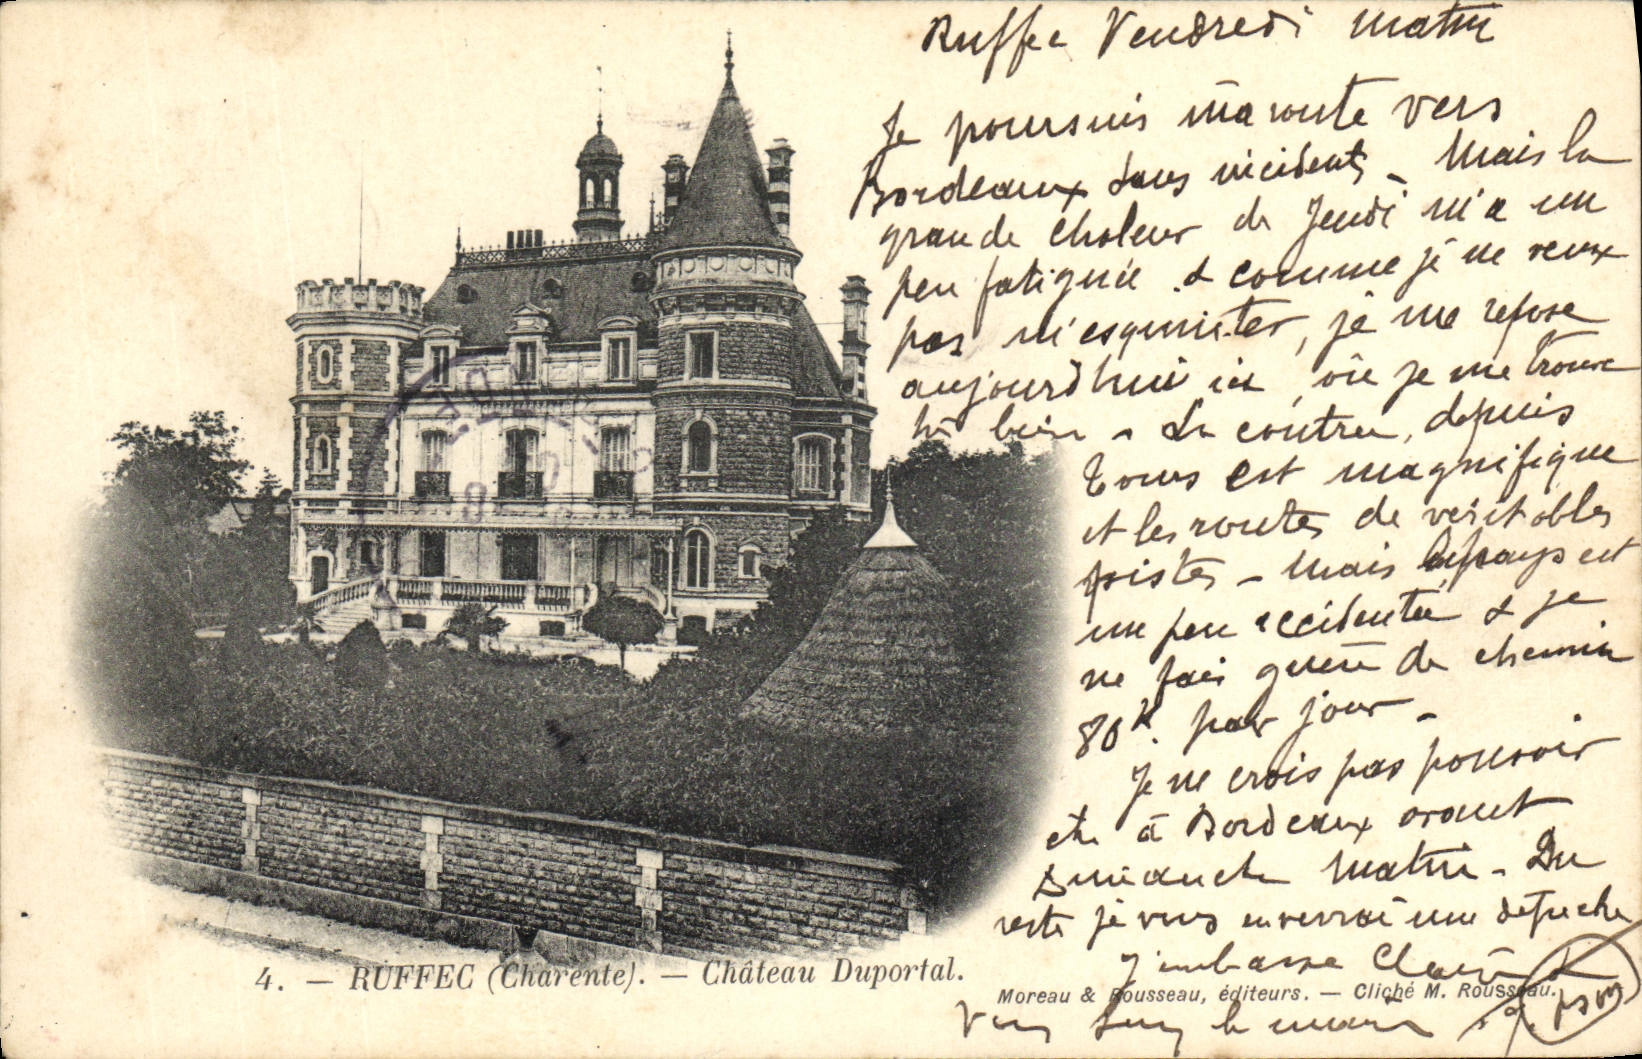 Ruffec Vendredi matin
Je poursuis ma route vers
Bordeaux sans incidents – Mais la
grande chaleur de Jeudi m'a un
peu fatiguée & comme je ne veux
pas m'esquinter, je me repose
aujourd'hui ici, où je me trouve
très bien – La contrée, depuis
Tours est magnifique
et les routes de véritables
pistes – Mais le pays est
un peu accidenté & je
ne fais guère de chemin
80 K. par jour –
Je ne crois pas pouvoir
être à Bordeaux avant
Dimanche matin – Du
reste je vous enverrai une dépêche
J'embrasse Claire &
4. — RUFFEC (Charente). — Château Duportal.
Moreau & Rousseau, éditeurs. — Cliché M. Rousseau.